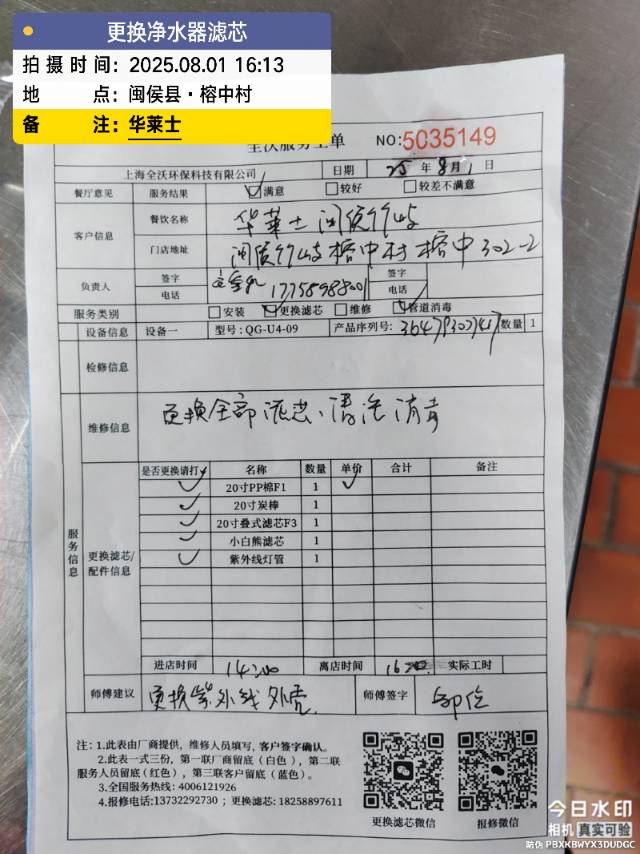 更换净水器滤芯
拍摄时间: 2025.08.01 16:13
地 点: 闽侯县·榕中村
备 注: 华莱士
全沃服务工单 NO:5035149
上海全沃环保科技有限公司 日期 25 年 8 月 1 日
餐厅意见 服务结果 ☑满意 □较好 □较差不满意
客户信息 餐饮名称 华莱士闽侯竹岐
门店地址 闽侯竹岐榕中村榕中302-2
负责人 签字 签字
电话 17758988001 电话
服务类别 □安装 ☑更换滤芯 □维修 ☑管道消毒
设备信息 设备一 型号: QG-U4-09 产品序列号: 数量 1
检修信息
维修信息 更换全部滤芯、清洗消毒
服务信息
更换滤芯/配件信息
是否更换请打✓ 名称 数量 单价 合计 备注
✓ 20寸PP棉F1 1 ✓
✓ 20寸炭棒 1
✓ 20寸叠式滤芯F3 1
✓ 小白熊滤芯 1
✓ 紫外线灯管 1
进店时间 14:00 离店时间 实际工时
师傅建议 更换紫外线外壳 师傅签字
注: 1.此表由厂商提供，维修人员填写，客户签字确认。
2.此表一式三份，第一联厂商留底（白色），第二联
服务人员留底(红色)，第三联客户留底（蓝色）。
3.全国服务热线: 4006121926
4.报修电话:13732292730 ; 更换滤芯: 18258897611
更换滤芯微信 报修微信
今日水印
相机 真实可验
防伪 PBXKBWYX3DUDGC